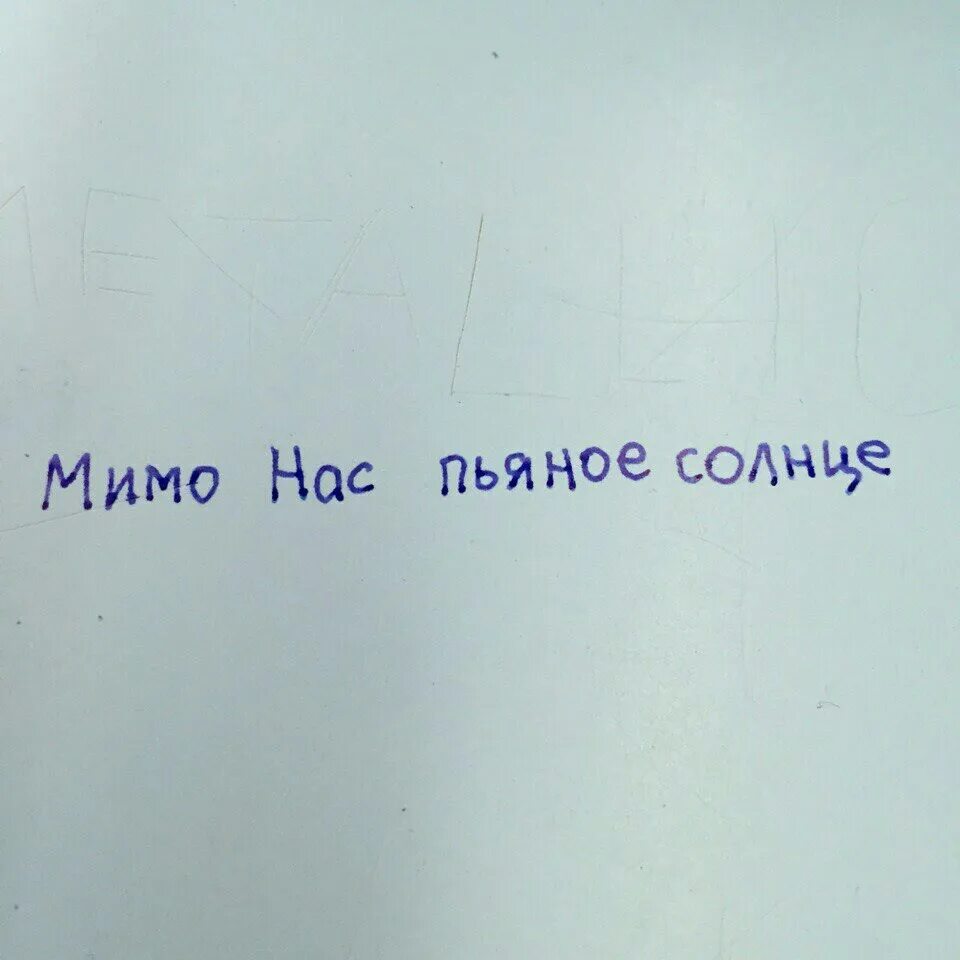 Мимо Нас пьяное солнце